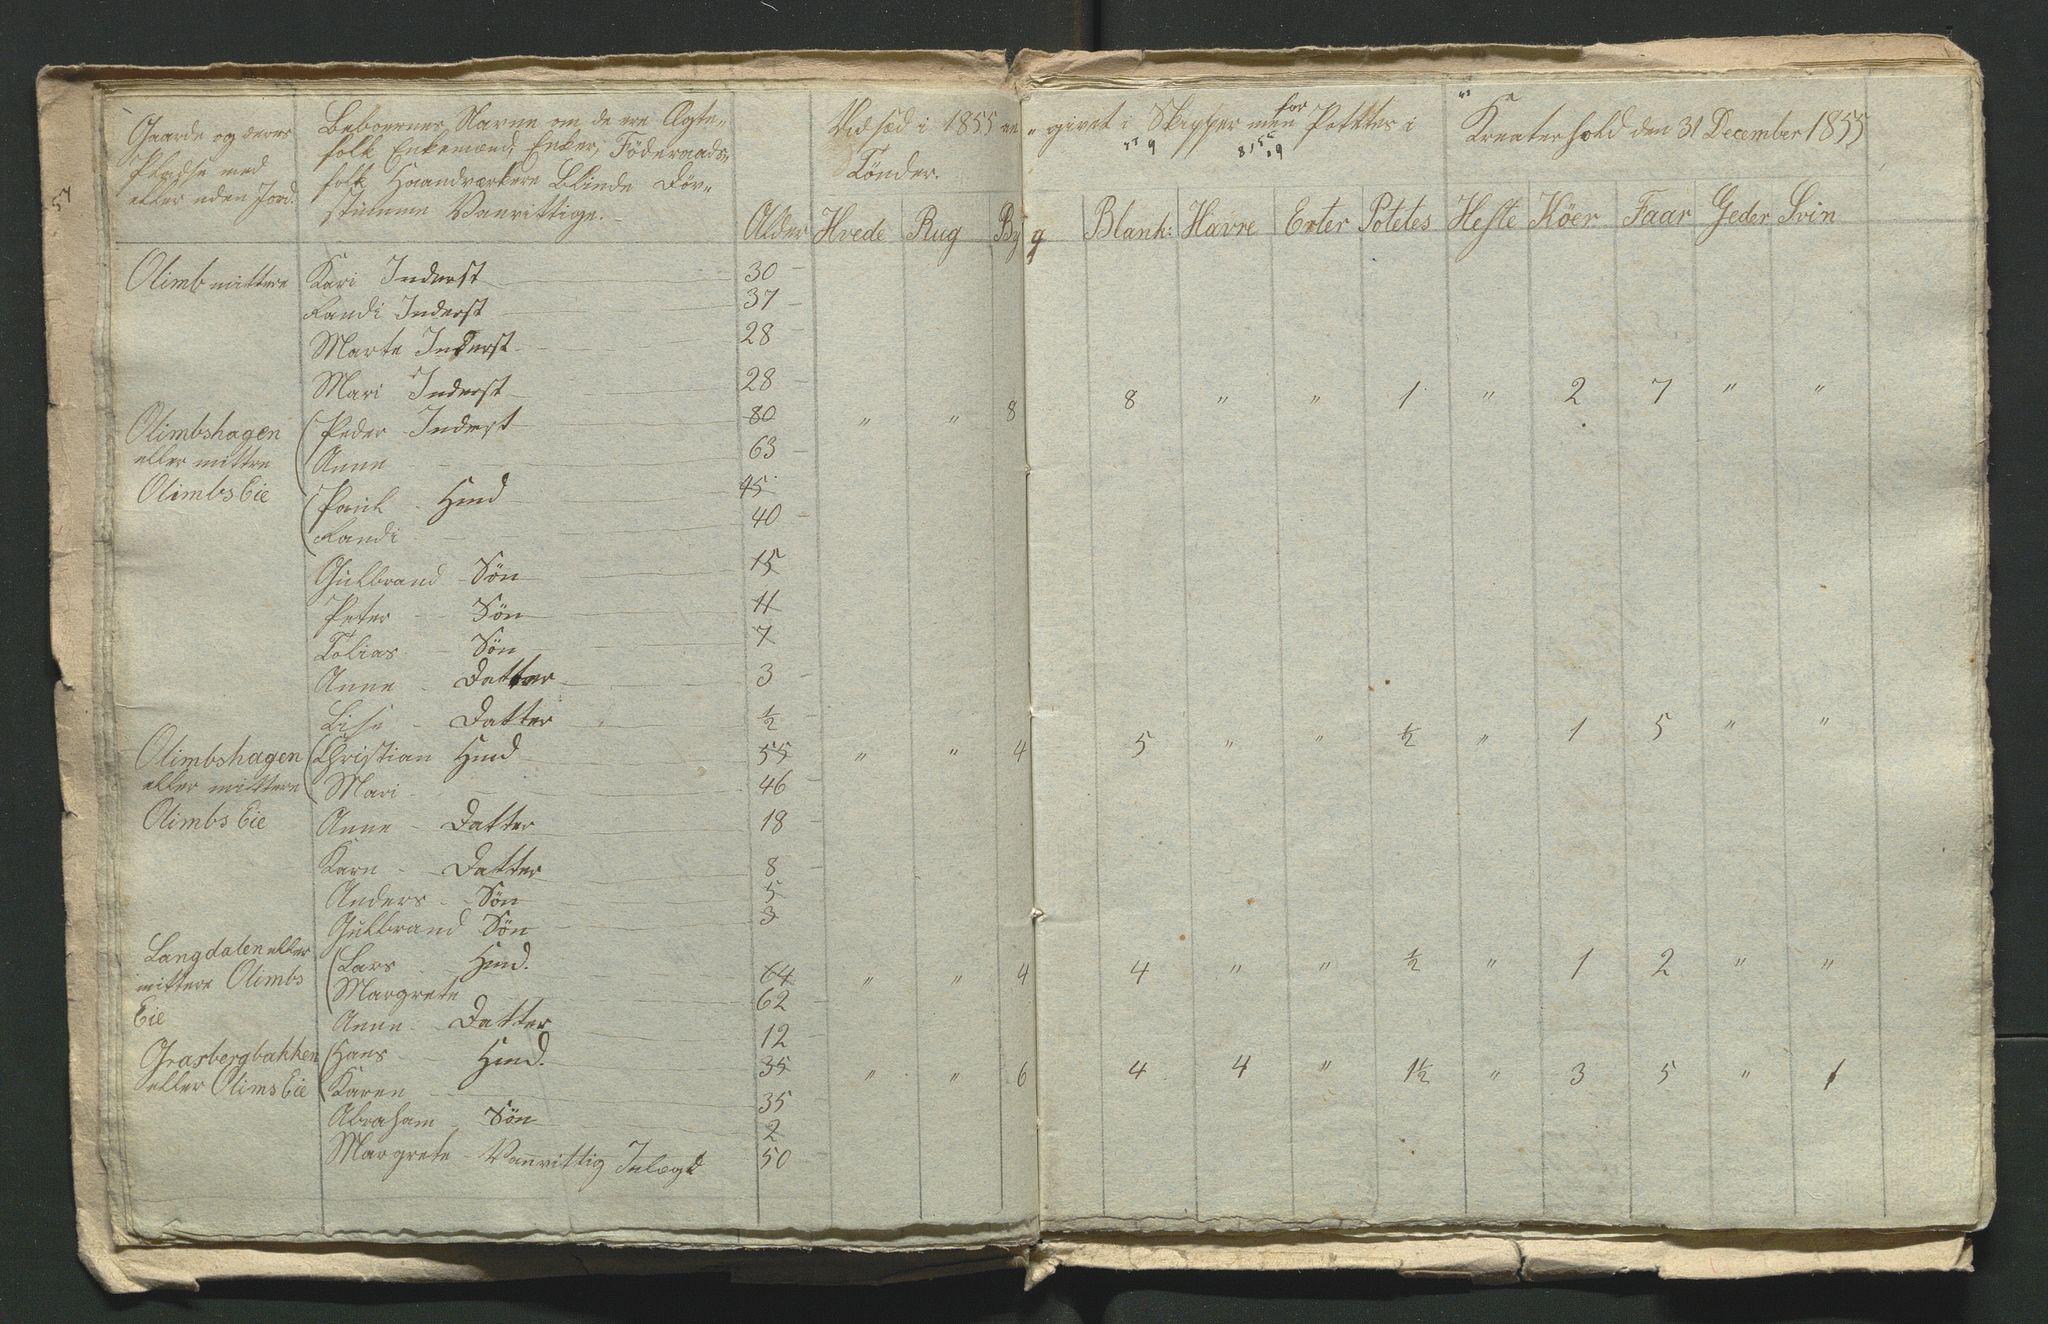 Gaarde og deres
Pladse med
eller uden Jord.
Beboernes Navne om de ere Ægte-
folk Enkemænd, Enker, Föderaads-
folk Haandværkere Blinde Döv-
stumme Vanvittige.
Alder
Udsæd i 1855 an- givet i Skjepper men for Potetes i
Tönder.
Kreaterhold den 31 December 1855
Hvede Rug Byg Blank: Havre Erter Potetes Heste Köer Faar Geder Svin
57
Olimb mittere Kari Inderst 30
Randi Inderst 37
Marte Inderst 28
Mari Inderst 28
Olimbshagen Peder Inderst 80 " " 8 8 " " 1 " 2 7 " "
eller mittre Anne 63
Olimbs Eie Paul Hmd 45
Randi 40
Gulbrand Sön 15
Peter Sön 11
Tobias Sön 7
Anne Datter 3
Lise Datter ½
Olimbshagen Christian Hmd 55 " " 4 5 " " ½ " 1 5 " "
eller mittere Mari 46
Olimbs Eie Anne Datter 18
Karn Datter 8
Anders Sön 5
Gulbrand Sön 3
Langdalen eller Lars Hmd. 64 " " 4 4 " " ½ " 1 2 " "
mittere Olimbs Margrete 62
Eie Anne Datter 12
Grasbergbakken Hans Hmd. 35 " " 6 4 4 " 1½ " 3 5 " 1
eller Olims Eie Karen 35
Abraham Sön 2
Margrete Vanvittig Inlægd 50